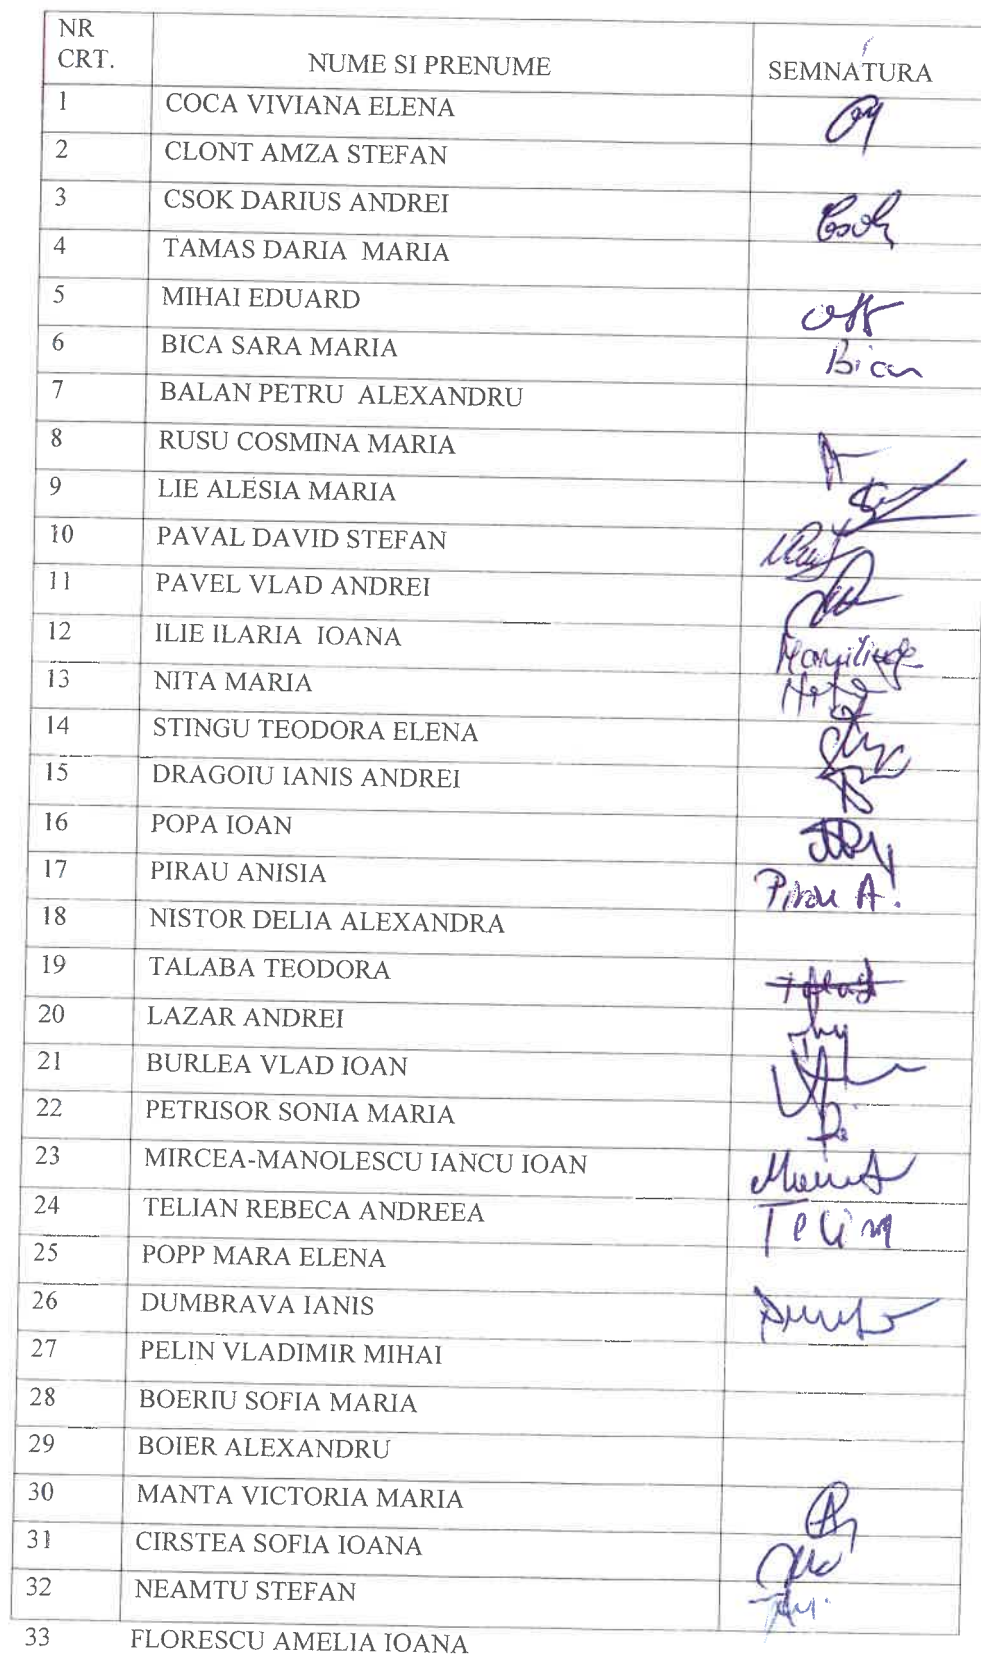 NR CRT. NUME SI PRENUME SEMNATURA
1 COCA VIVIANA ELENA
2 CLONT AMZA STEFAN
3 CSOK DARIUS ANDREI Csok
4 TAMAS DARIA MARIA
5 MIHAI EDUARD
6 BICA SARA MARIA Bica
7 BALAN PETRU ALEXANDRU
8 RUSU COSMINA MARIA
9 LIE ALESIA MARIA
10 PAVAL DAVID STEFAN
11 PAVEL VLAD ANDREI
12 ILIE ILARIA IOANA
13 NITA MARIA
14 STINGU TEODORA ELENA
15 DRAGOIU IANIS ANDREI
16 POPA IOAN
17 PIRAU ANISIA Pirau A.
18 NISTOR DELIA ALEXANDRA
19 TALABA TEODORA
20 LAZAR ANDREI
21 BURLEA VLAD IOAN
22 PETRISOR SONIA MARIA
23 MIRCEA-MANOLESCU IANCU IOAN
24 TELIAN REBECA ANDREEA Telian
25 POPP MARA ELENA
26 DUMBRAVA IANIS
27 PELIN VLADIMIR MIHAI
28 BOERIU SOFIA MARIA
29 BOIER ALEXANDRU
30 MANTA VICTORIA MARIA
31 CIRSTEA SOFIA IOANA
32 NEAMTU STEFAN
33 FLORESCU AMELIA IOANA